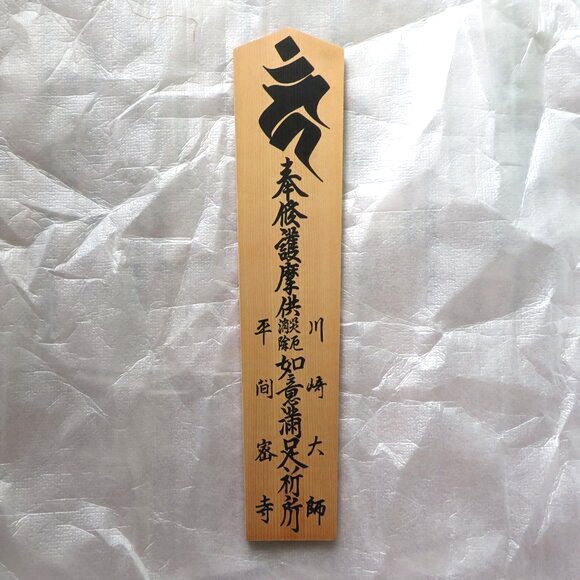 川崎大師
奉修護摩供災厄消除如意滿足祈所
平間密寺